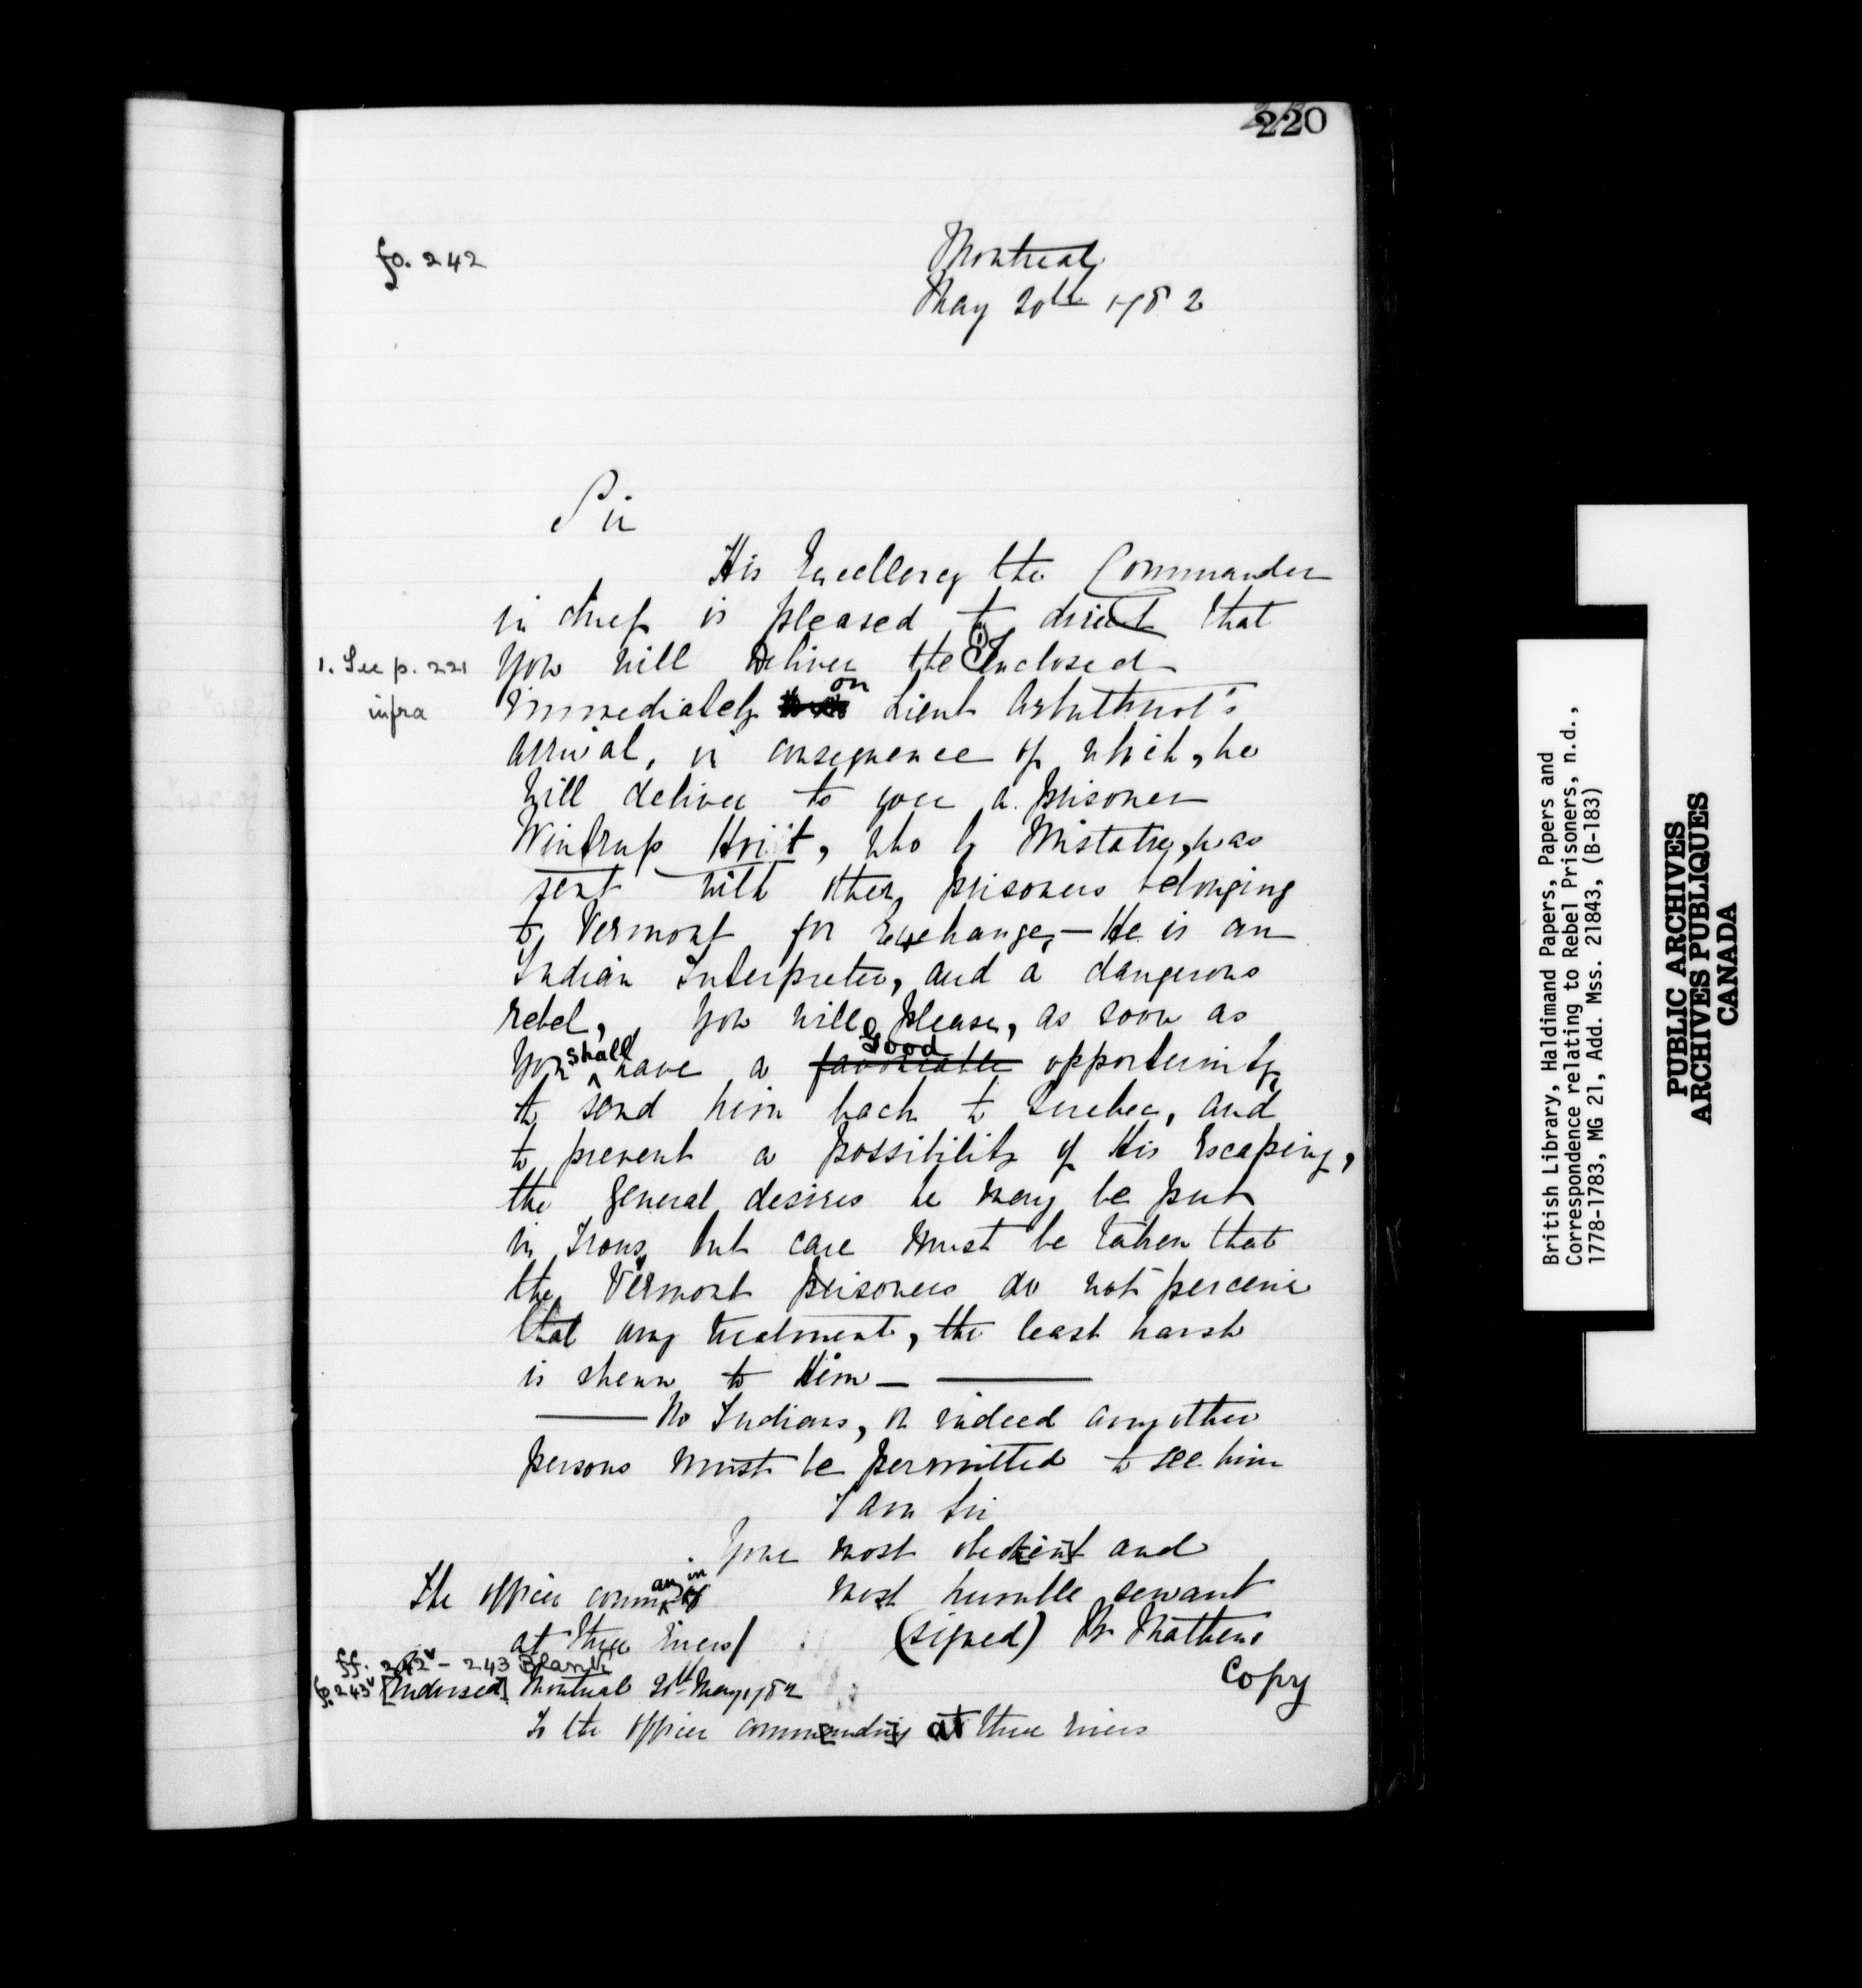 220
fo. 242
Montreal
May 20th 1782
Sir
His Excellency the Commander
in chief is pleased to direct that
1. See p. 221
infra
you will deliver the (1) Inclosed
immediately on Lieut Arbuthnot's
arrival, in consequence of which, he
will deliver to you a prisoner
Wintrup Hoit, who by Mistake, was
sent with other prisoners belonging
to Vermont for Exchange, — He is an
Indian Interpreter, and a dangerous
rebel, you will please, as soon as
you shall have a favorable good opportunity
to send him back to Quebec, and
to prevent a possibility of His Escaping,
the General desires he may be put
in Irons, but care must be taken that
the Vermont prisoners do not perceive
that any treatment, the least harsh
is shewn to Him — ———
——— No Indians, or indeed any other
persons must be permitted to see him
I am Sir
Your most obe[dien]t and
most humble servant
The officer comman[din]g
at three rivers/
(signed) R. Mathews
Copy
ff. 242v - 243 Blank
fo. 243v [Endorsed] Montreal 20th May 1782
To the officer comm[andin]g at three rivers
British Library, Haldimand Papers, Papers and
Correspondence relating to Rebel Prisoners, n.d.,
1778-1783, MG 21, Add. Mss. 21843, (B-183)
PUBLIC ARCHIVES
ARCHIVES PUBLIQUES
CANADA